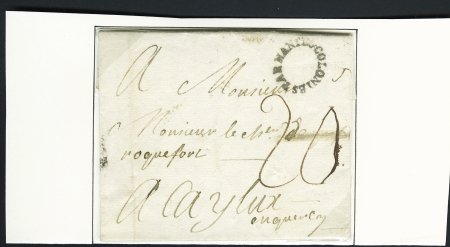 COLONIES PAR NANTES
A Monsieur
Monsieur le M de
roquefort
20
A Caylux
en quercy